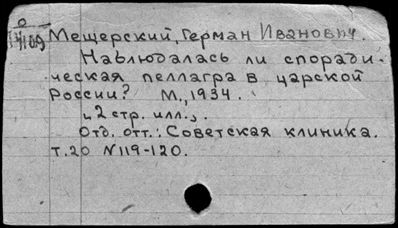 Мещерский, Герман Иванович.
Наблюдалась ли споради-
ческая пеллагра в царской
России? М., 1934.
2 стр. илл.
Отд. отт.: Советская клиника.
т.20 №119-120.